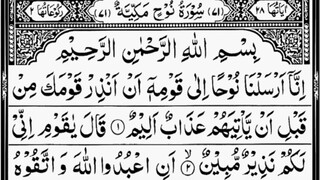 اٰيَاتُهَا ٢٨ (٧١) سُوْرَةُ نُوْحٍ مَكِّيَّةٌ (٧١) رُكُوْعَاتُهَا ٢
بِسْمِ اللّٰهِ الرَّحْمٰنِ الرَّحِيْمِ
اِنَّاۤ اَرْسَلْنَا نُوْحًا اِلٰى قَوْمِهٖۤ اَنْ اَنْذِرْ قَوْمَكَ مِنْ
قَبْلِ اَنْ يَّاْتِيَهُمْ عَذَابٌ اَلِيْمٌ ١ قَالَ يٰقَوْمِ اِنِّىْ
لَكُمْ نَذِيْرٌ مُّبِيْنٌ ٢ اَنِ اعْبُدُوا اللّٰهَ وَ اتَّقُوْهُ